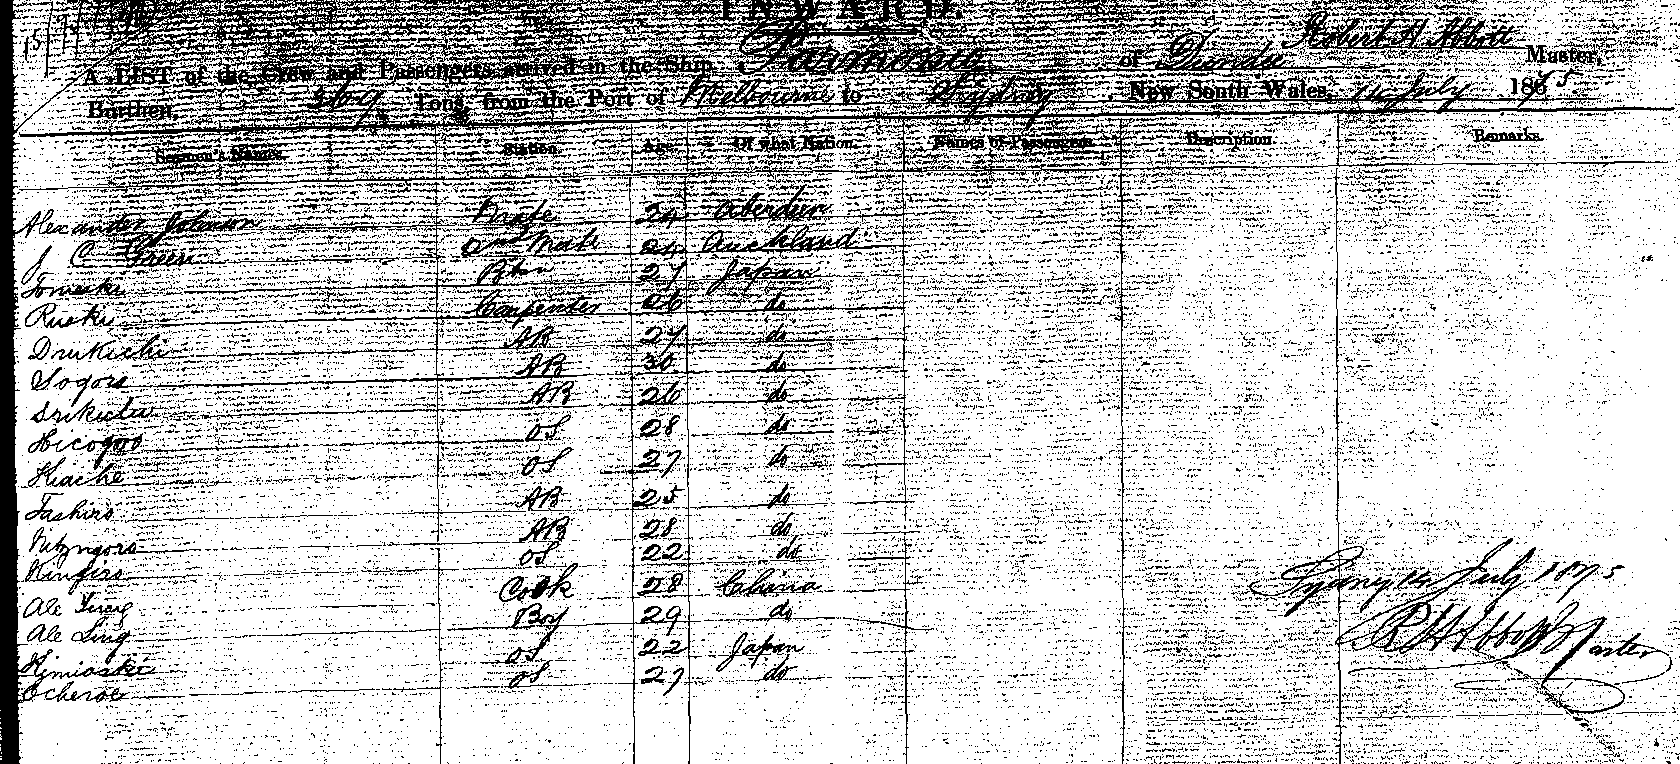 INWARD.
A LIST of the Crew and Passengers arrived in the Ship of Dundee Robert H Abbott Master,
Burthen, Tons, from the Port of Melbourne to Sydney, New South Wales, July 1875
Seamen's Names. Station. Age. Of what Nation. Names of Passengers. Description. Remarks.
Alexander Johnson Mate 24 Aberdeen
J C Green 2nd Mate 24 Auckland
Tomeski Bsn 27 Japan
Ruski Carpenter 26 do
Drukichi AB 27 do
Sogora AB 30 do
AB 26 do
OS 28 do
Kiache OS 27 do
Tashiro AB 25 do
AB 28 do
Kinjiro OS 22 do
Ale Cook 28 China
Ale Ling Boy 29 do
Kimioskie OS 22 Japan
Ocheroe OS 27 do
Sydney July 1875
R H Abbott Master